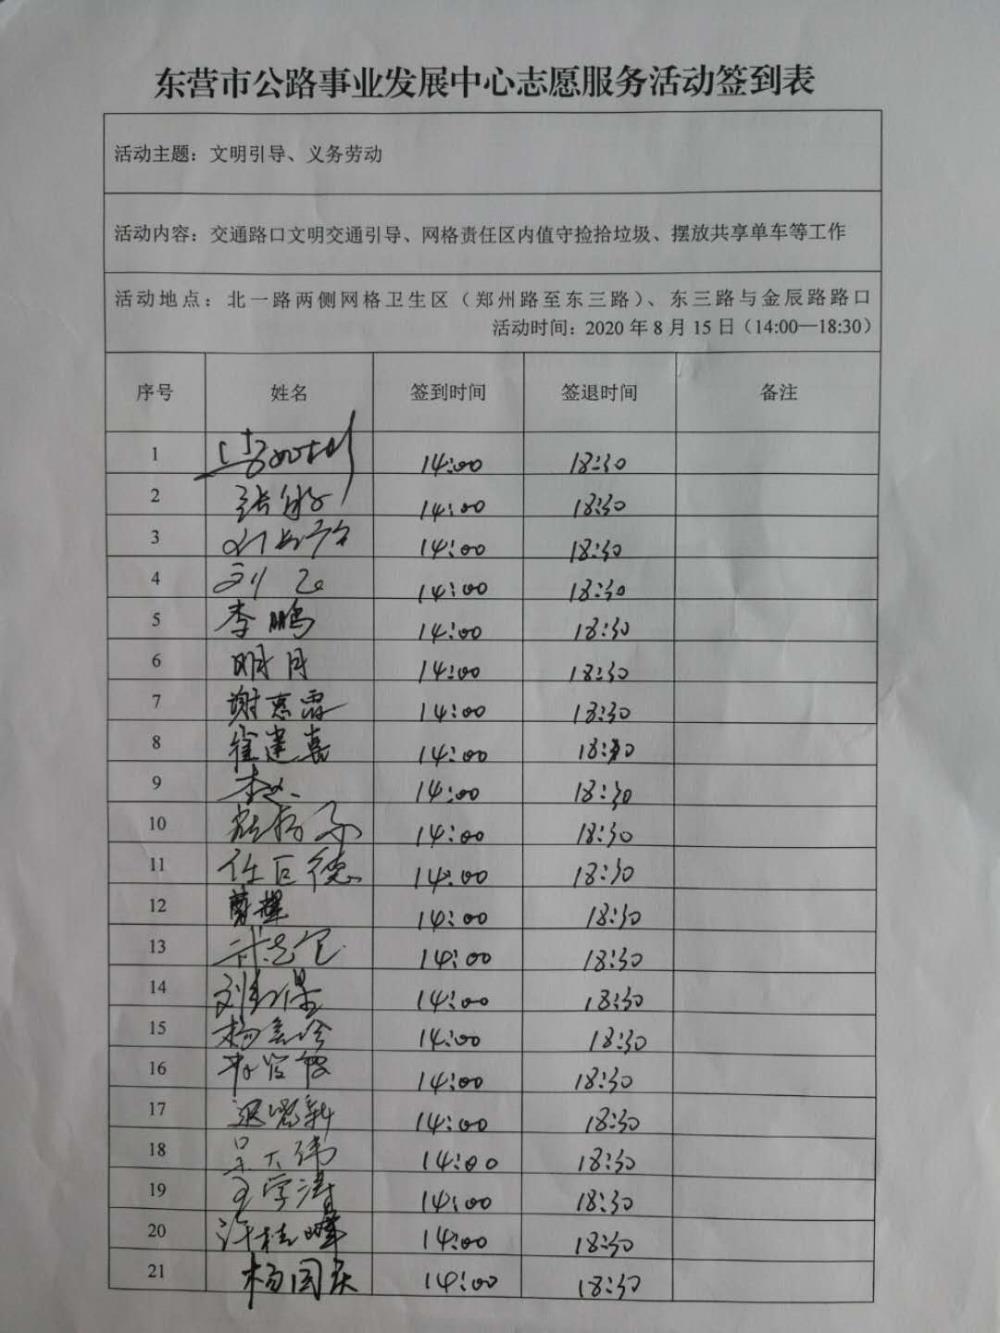 东营市公路事业发展中心志愿服务活动签到表
活动主题：文明引导、义务劳动
活动内容：交通路口文明交通引导、网格责任区内值守捡拾垃圾、摆放共享单车等工作
活动地点：北一路两侧网格卫生区（郑州路至东三路）、东三路与金辰路路口
活动时间：2020年8月15日（14:00—18:30）
序号 姓名 签到时间 签退时间 备注
1 14:00 18:30
2 张 14:00 18:30
3 14:00 18:30
4 刘 14:00 18:30
5 李鹏 14:00 18:30
6 明月 14:00 18:30
7 谢惠霞 14:00 18:30
8 崔建喜 14:00 18:30
9 李 14:00 18:30
10 14:00 18:30
11 任巨德 14:00 18:30
12 14:00 18:30
13 14:00 18:30
14 刘 14:00 18:30
15 杨 14:00 18:30
16 14:00 18:30
17 14:00 18:30
18 大伟 14:00 18:30
19 王学涛 14:00 18:30
20 许桂峰 14:00 18:30
21 杨国庆 14:00 18:30